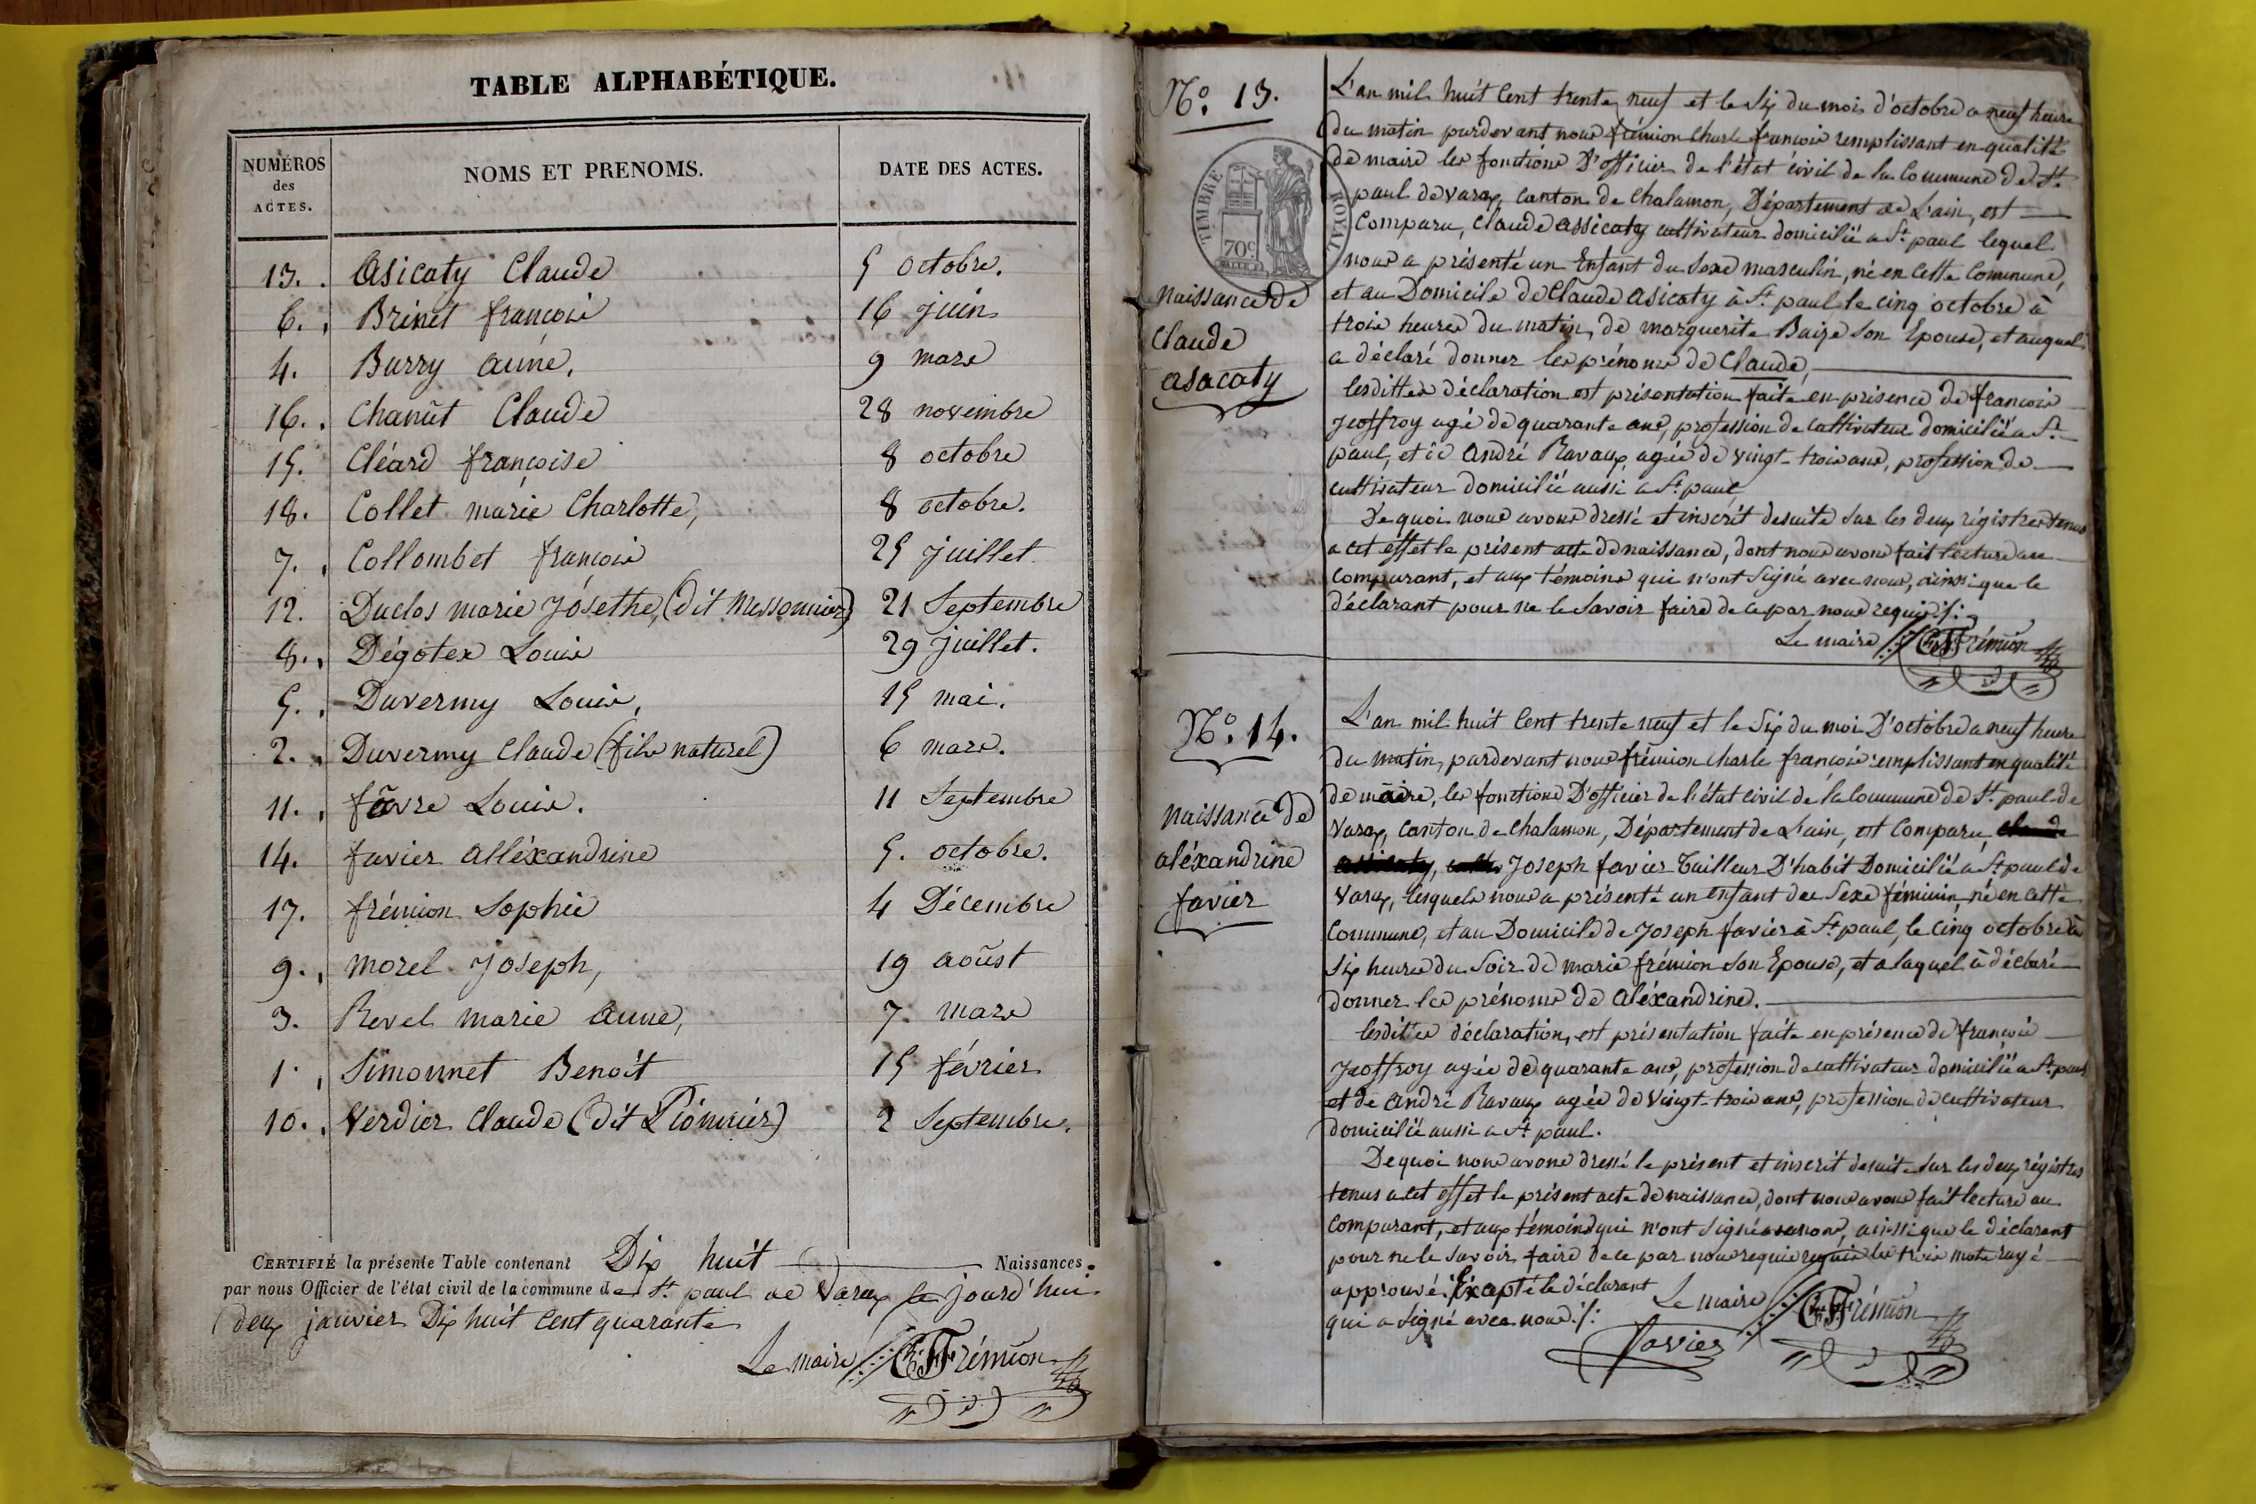 TABLE ALPHABÉTIQUE.
NUMÉROS des ACTES.
NOMS ET PRENOMS.
DATE DES ACTES.
13. Asicaty Claude 5 octobre.
6. Brinet françois 16 juin
4. Burry aimé, 9 mars
16. Chanût Claude 28 novembre
15. Cléard françoise 8 octobre
18. Collet marie Charlotte, 8 octobre.
7. Collombet françois 25 juillet
12. Duclos marie Jósethe, (dit Messonnier) 21 Septembre
8. Dégotex Louis 29 juillet.
5. Duvermy Louis, 15 mai.
2. Duvermy Claude (fils naturel) 6 mars.
11. fâvre Louis. 11 Septembre
14. favier alléxandrine 5. octobre.
17. frémion Sophie 4 Décembre
9. morel Joseph, 19 aoûst
3. Revel marie anne, 7. mars
1. Simonnet Benoit 15 février
10. Verdier Claude (dit Pionnier) 2 Septembre.
CERTIFIÉ la présente Table contenant Dix huit Naissances.
par nous Officier de l'état civil de la commune de St. paul de Varax le jourd'hui
deux janvier Dix huit Cent quarante
Le maire CF Frémion
No. 13.
TIMBRE ROYAL
70c
Naissance de
Claude
asacaty
L'an mil huit Cent trente neuf et le Six du mois d'octobre a neuf heure
du matin pardevant nous frémion Charle françois remplissant en qualité
de maire les fonctions D'officier de l'état civil de la Commune de St.
paul de varax, Canton de Chalamon, Département de L'ain, est
Comparu, Claude assicaty cultivateur domicilié a St. paul lequel
nous a présenté un Enfant du Sexe masculin, né en Cette Commune,
et au Domicile de Claude asicaty à St. paul le cinq octobre à
trois heures du matin, de marguerite Baize Son Epouse, et auquel
a déclaré donner les prénoms de Claude,
lesdittes déclaration est présentation faite en présence de françois
Jeoffroy agé de quarante ans, profession de Cultivateur domicilié a St.
paul, et de André Ravaux agée de vingt-trois ans, profession de
cultivateur domicilié aussi a St. paul
De quoi nous avons dressé et inscrit desuite Sur les deux régistres tenus
a cet éffet le présent acte de naissance, dont nous avons fait lecture au
Comparant, et aux témoins qui n'ont Signé avec nous, ainsi que le
déclarant pour ne le Savoir faire de ce par nous requis ./.
Le maire CF Frémion
No. 14.
Naissance de
aléxandrine
favier
L'an mil huit Cent trente neuf et le Six du moi D'octobre a neuf heure
du matin, pardevant nous frémion Charle françois remplissant en qualité
de maire, les fonctions D'officier de l'état civil de la Commune de St. paul de
Varax, Canton de Chalamon, Département de L'ain, est Comparu,
Joseph favier Tailleur D'habit Domicilié a St. paul de
Varax, lesquels nous a présenté un enfant du Sexe féminin, né en cette
Commune, et au Domicile de Joseph favier à St. paul, le Cinq octobre à
Six heures du Soir de marie frémion Son Epouse, et a laquel à déclaré
donner les prénoms de aléxandrine.
lesdittes déclaration, est présentation faite en présence de françois
Jeoffroy agée de quarante ans, profession de cultivateur domicilié a St. paul
et de André Ravaux agée de Vingt-trois ans, profession de Cultivateur
domicilié aussi a St. paul.
De quoi nous avons dressé le présent et inscrit desuite Sur les deux régistres
tenus a cet éffet le présent acte de naissance, dont nous avons fait lecture au
Comparant, et aux témoins qui n'ont Signé avec nous, ainssi que le déclarant
pour ne le Savoir faire de ce par nous requis requis les trois mots rayé
approuvé. Excepté le déclarant
qui a Signé avec nous ./.
Le maire CF Frémion
favier